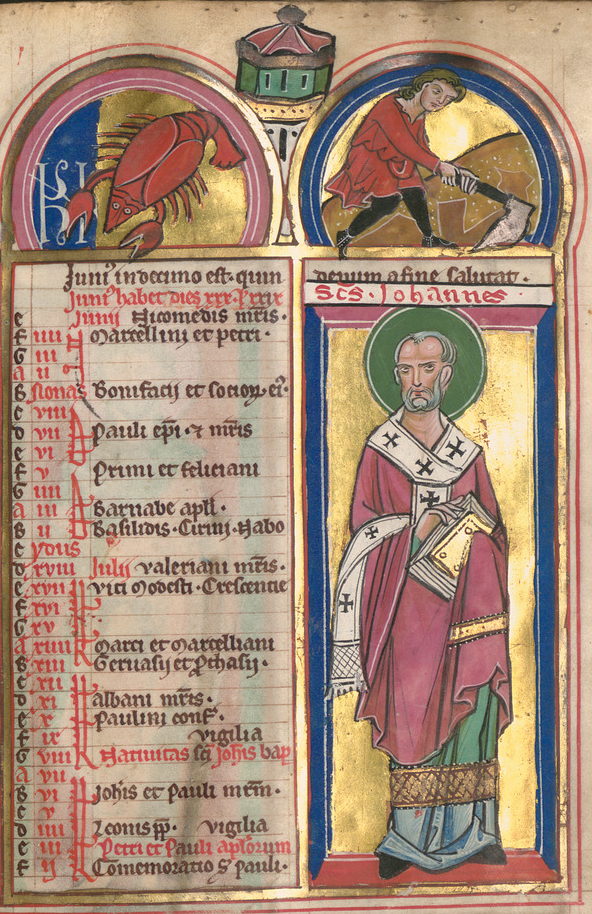 KL
Juni⁹ in decimo est· quin
denum a fine salutat·
Juni⁹ habet dies xxx· l̄ xxix
Scs· Johannes·
e Junii Nicomedis mr̄is·
f iiii Marcellini et petri·
G iii
a ii
B Nonas Bonifacij et socioꝝ ei⁹·
c viii
d vii Pauli ep̄i· ⁊ mr̄is
e vi
f v Primi et feliciani
G iiii
a iii Barnabe apl̄i·
B ii Basilidis· Cirini· Nabo
c ydus
d xviii Julij valeriani mr̄is·
e xvii viti Modesti· Crescentie
f xvi
G xv
a xiiii Marci et Marcelliani
B xiii Geruasij et ꝓthasij·
c xii
d xi albani mr̄is·
e x Paulini conf̄·
f ix vigilia
G viii Natiuitas sc̄i Joh̄is bap̄
a vii
B vi Joh̄is et Pauli mr̄m·
c v
d iiii Leonis pp̄· vigilia
e iii Petri et Pauli apl̄orum
f ii Cōmemoratio s̄ Pauli·